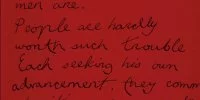 men are.
People are hardly
worth such trouble
Each seeking his own
advancement, they comm